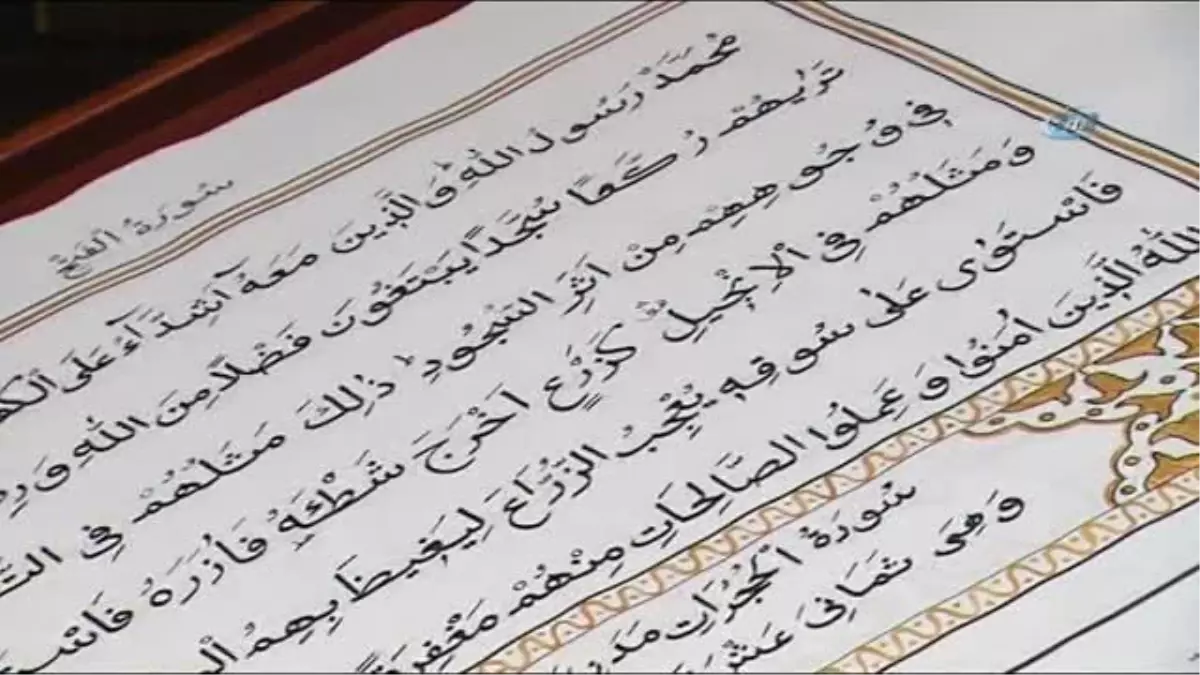 سُورَةُ الْفَتْحِ
مُحَمَّدٌ رَسُولُ اللّٰهِ وَالَّذِينَ مَعَهُ اَشِدَّآءُ عَلَى
تَرٰيهُمْ رُكَّعًا سُجَّدًا يَبْتَغُونَ فَضْلًا مِنَ اللّٰهِ وَ
فِي وُجُوهِهِمْ مِنْ اَثَرِ السُّجُودِ ذٰلِكَ مَثَلُهُمْ فِي
وَمَثَلُهُمْ فِي الْاِنْجِيلِ كَزَرْعٍ اَخْرَجَ شَطْـَٔهُ فَاٰزَرَهُ
فَاسْتَوٰى عَلٰى سُوقِهٖ يُعْجِبُ الزُّرَّاعَ لِيَغِيظَ بِهِمُ
اللّٰهُ الَّذِينَ اٰمَنُوا وَعَمِلُوا الصَّالِحَاتِ مِنْهُمْ مَغْفِرَةً
سُورَةُ الْحُجُرَاتِ
وَهِيَ ثَمَانِيَ